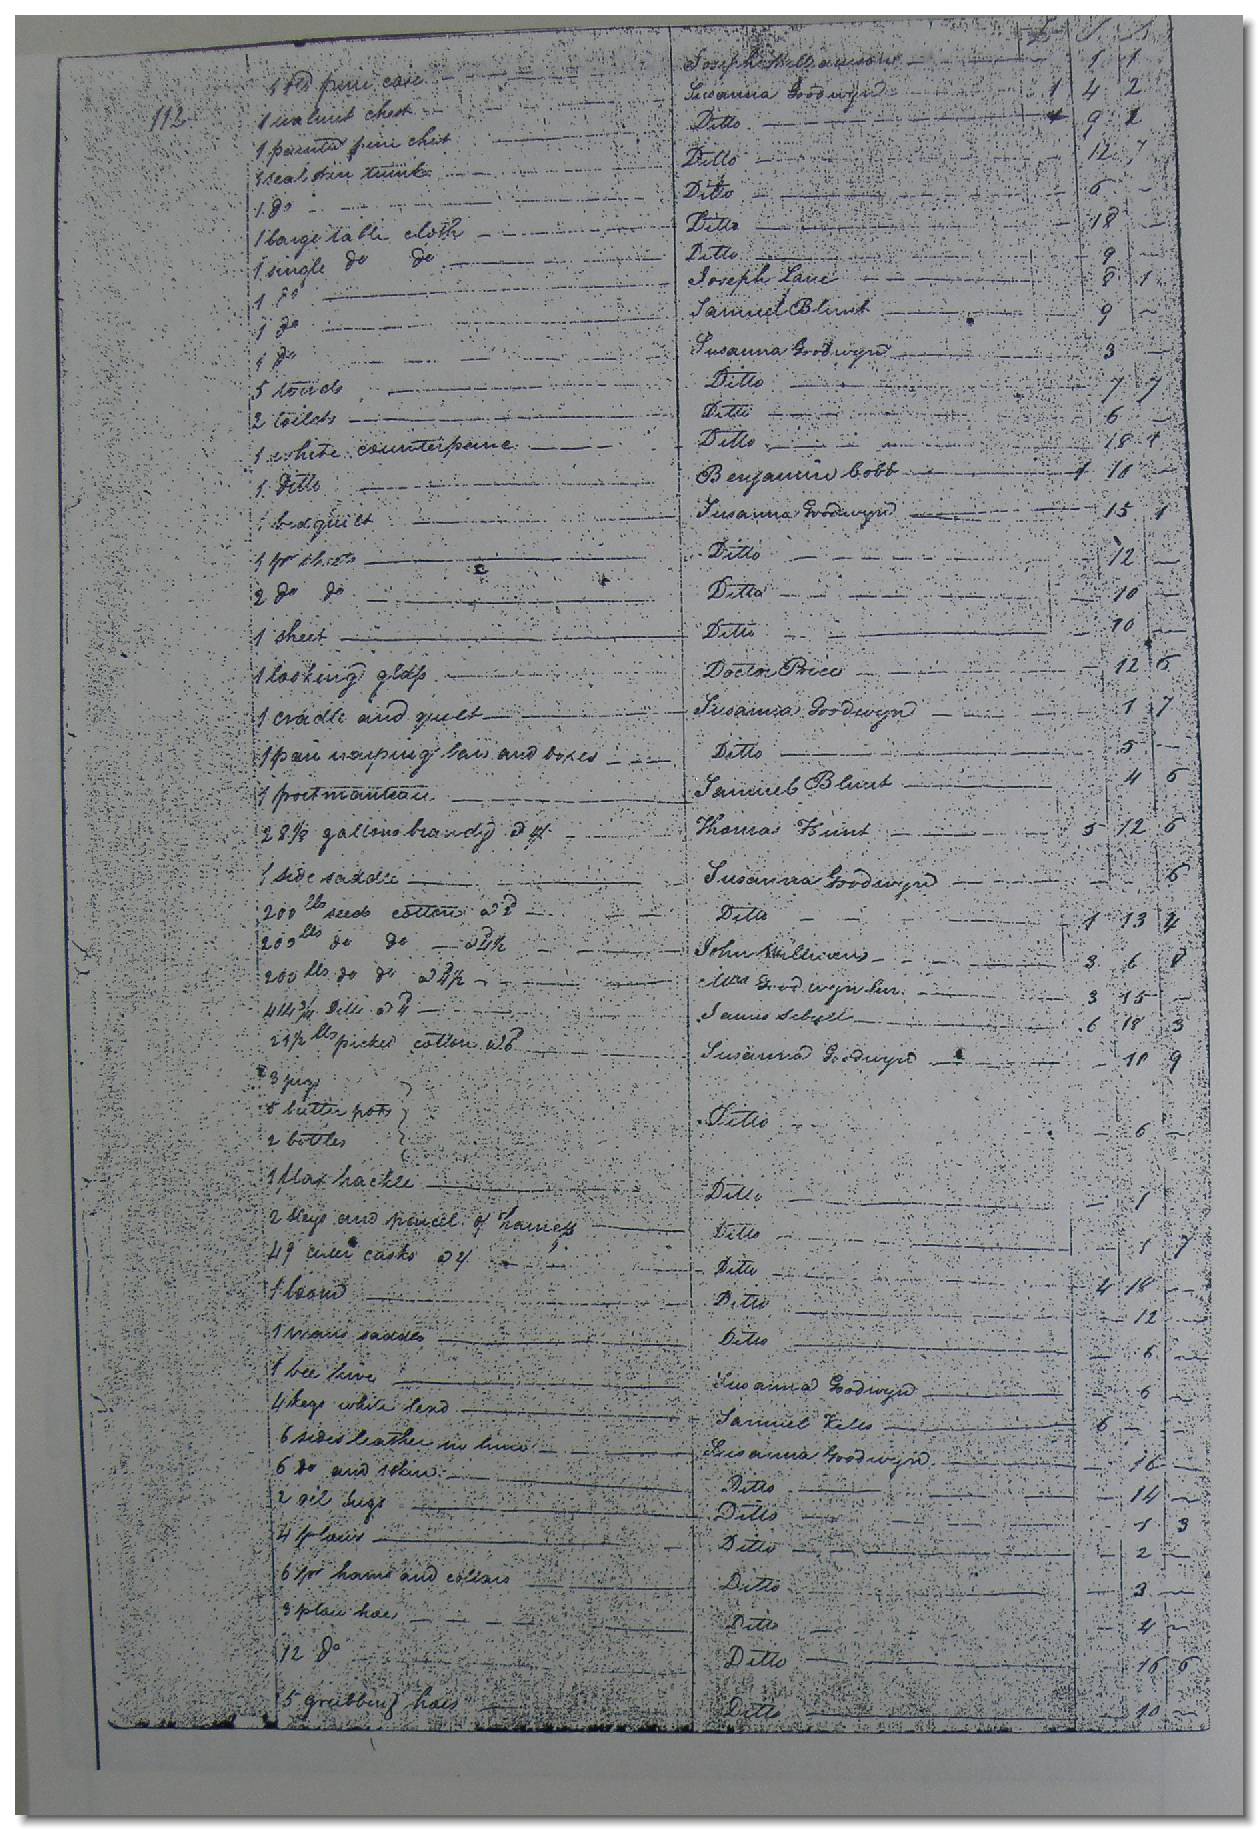 112
£ S
1 old pine case Joseph Williamson 1 1
1 walnut chest Susanna Goodwyn 1 4 2
1 painted pine chest Ditto 9 1
1 seal skin trunk Ditto 12 7
1 do Ditto 6
1 large table cloth Ditto 18
1 single do do Ditto 9
1 do Joseph Lane 8 1
1 do Samuel Blunt 9
1 do Susanna Goodwyn 3
5 towels Ditto 7 7
2 toilets Ditto 6
1 white counterpane Ditto 18 1
1 Ditto Benjamin Cobb 1 10
1 bed quilt Susanna Goodwyn 15 1
1 pr sheets Ditto 12
2 do do Ditto 10
1 sheet Ditto 10
1 looking glass Doctor Price 12 6
1 cradle and quilt Susanna Goodwyn 1 7
1 pair warping bars and boxes Ditto 5
1 portmanteau Samuel Blunt 4 6
28 1/8 gallons brandy @ 4/ Thomas Hunt 5 12 6
1 side saddle Susanna Goodwyn 6
200 lbs seeds cotton @ 2d Ditto 1 13 4
200 lbs do do @ 4d 1/2 John Williams 3 6 8
200 lbs do do @ 4d 1/2 Mrs Goodwyn Senr. 3 15
414 3/4 Ditto @ 4d James 6 18 3
21 1/2 lbs picked cotton @ 6d Susanna Goodwyn 10 9
3 jugs
5 butter pots Ditto 6
2 bottles
1 flax hackle Ditto 1
2 slays and parcel of harness Ditto 1 7
49 cider casks @ 2/ Ditto 4 18
1 loom Ditto 12
1 mans saddle Ditto 6
1 bee hive Susanna Goodwyn 6
4 kegs white lead Samuel Kello 6
6 sides leather in lime Susanna Goodwyn 16
6 do and skin Ditto 14
2 oil jugs Ditto 1 3
4 plows Ditto 2
6 pr hams and collars Ditto 3
3 plow hoes Ditto 4
12 do Ditto 16 6
5 grubbing hoes Ditto 10